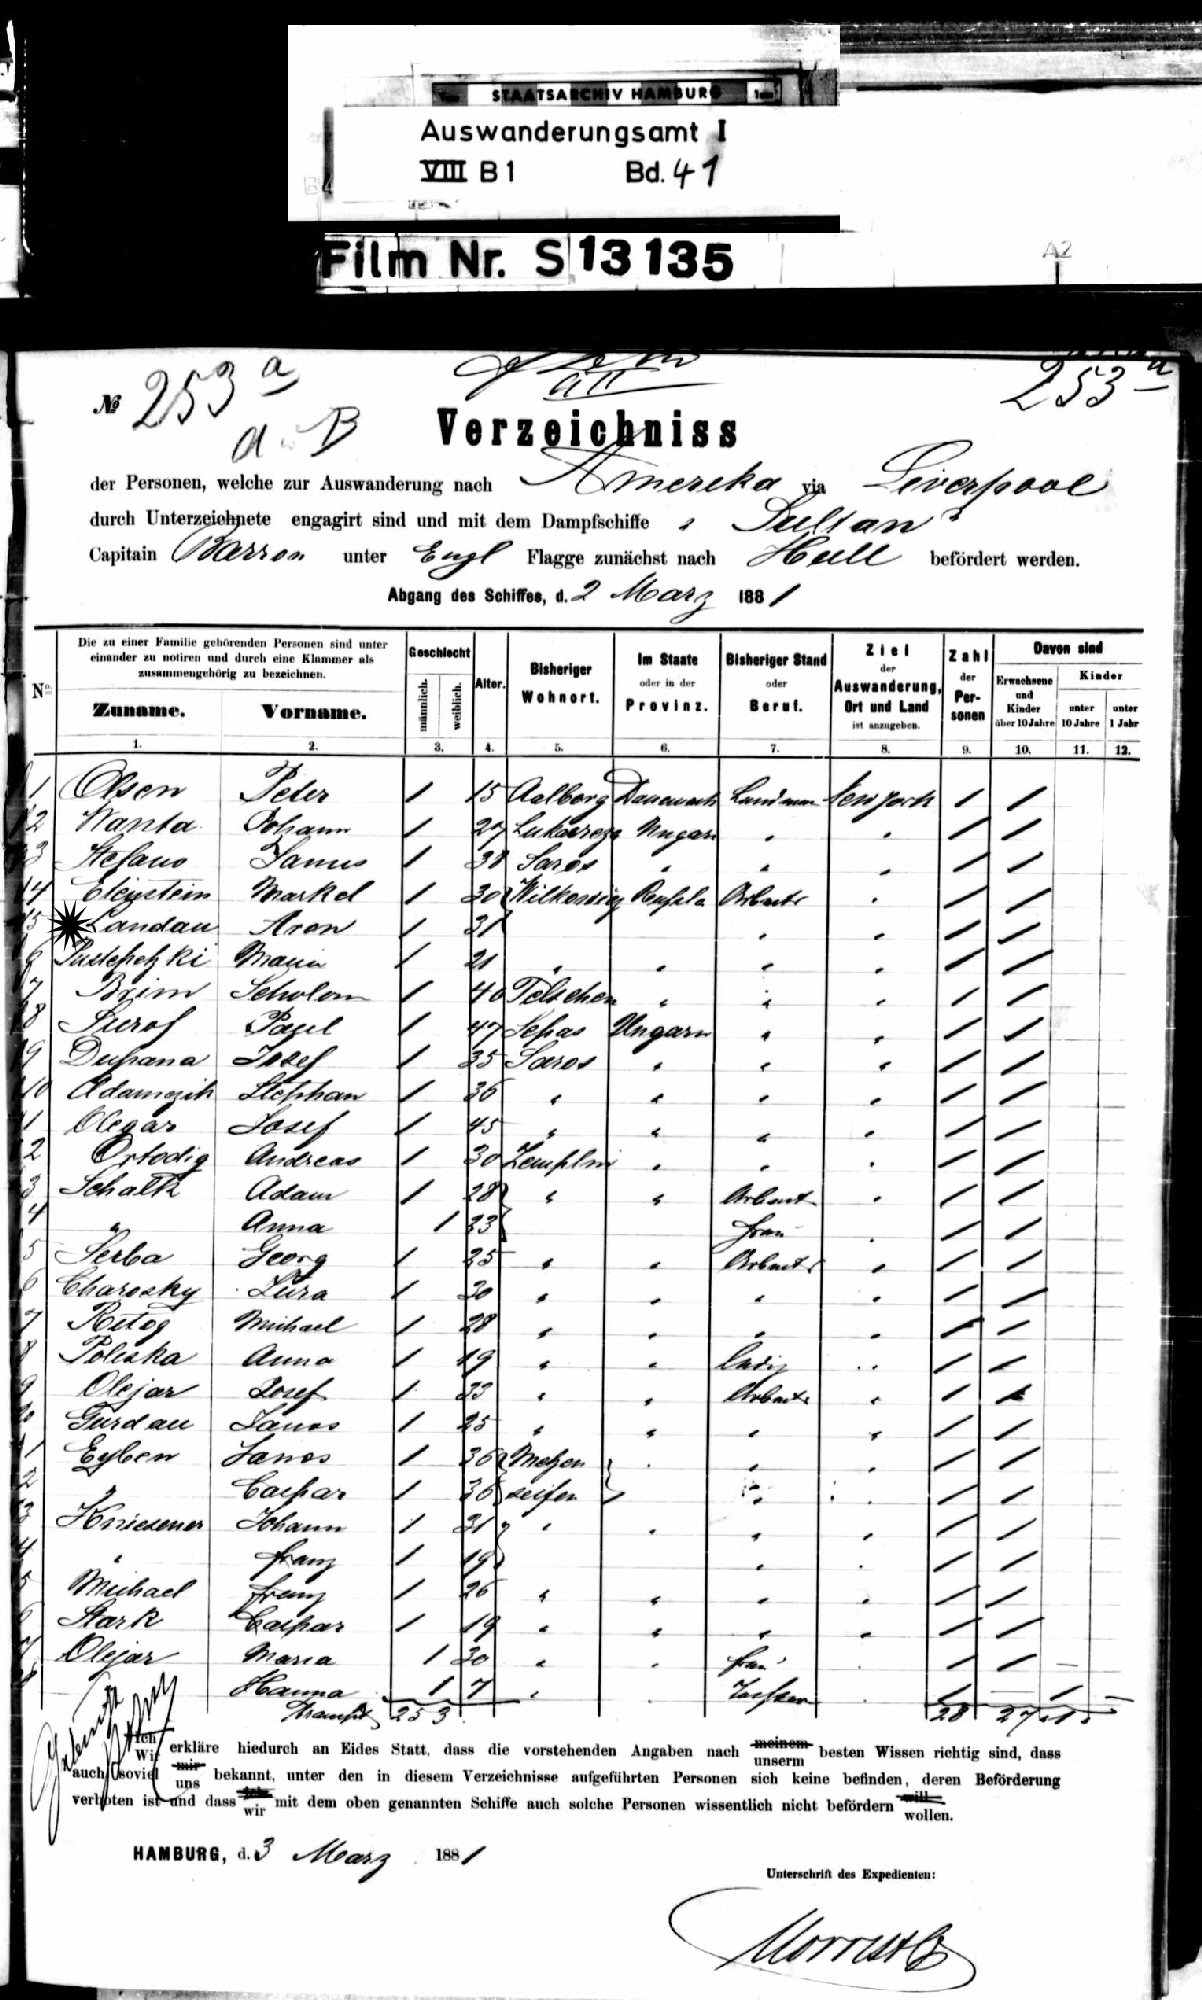 STAATSARCHIV HAMBURG
Auswanderungsamt I
VIII B 1 Bd. 41
Film Nr. S 13135
A2
№ 253 a
253 a
a. B
Verzeichniss
der Personen, welche zur Auswanderung nach Amerika via Liverpool
durch Unterzeichnete engagirt sind und mit dem Dampfschiffe „Sultan"
Capitain Barron unter Engl Flagge zunächst nach Hull befördert werden.
Abgang des Schiffes, d. 2 Marz 1881
No. Die zu einer Familie gehörenden Personen sind unter einander zu notiren und durch eine Klammer als zusammengehörig zu bezeichnen. Zuname. Vorname. Geschlecht männlich. weiblich. Alter. Bisheriger Wohnort. Im Staate oder in der Provinz. Bisheriger Stand oder Beruf. Ziel der Auswanderung, Ort und Land ist anzugeben. Zahl der Personen Davon sind Erwachsene und Kinder über 10 Jahre Kinder unter 10 Jahre unter 1 Jahr
1. 2. 3. 4. 5. 6. 7. 8. 9. 10. 11. 12.
1 Olsen Peter 1 15 Aalborg Danemark Landman New york 1 1
2 Wanta Johann 1 27 Ungarn " " 1 1
3 Stefano Janus 1 38 Saros " " " 1 1
4 Markel 1 30 Arbeiter " 1 1
5 Landau Aron 1 31 " " 1 1
6 Maria 1 21 " " " " 1 1
7 Brim Scholom 1 40 Telschen " " " 1 1
8 Surof Pagel 1 47 Sepas Ungarn " " 1 1
9 Dupana Josef 1 35 Saros " " " 1 1
10 Adamczik Stephan 1 36 " " " " 1 1
1 Olegar Josef 1 45 " " " " 1 1
2 Ortodig Andreas 1 30 Zemplin " " " 1 1
3 Schalk Adam 1 28 " " Arbeiter " 1 1
4 " Anna 1 23 frau " 1 1
5 Serba Georg 1 25 " " Arbeiter " 1 1
6 Charosky Zura 1 30 " " " " 1 1
7 Retog Michael 1 28 " " " " 1 1
8 Poliska Anna 1 19 " " ledig " 1 1
9 Olejar Josef 1 33 " " Arbeiter " 1 1
20 Gurdau Janos 1 25 " " " " 1 1
1 Eyben Janos 1 36 Metzen " " " 1 1
2 " Caspar 1 36 seifen " " 1 1
3 Kniesener Johann 1 31 " " " " 1 1
4 " franz 1 19 " " 1 1
5 Michael franz 1 26 " " " " 1 1
6 Stark Caspar 1 19 " " " " 1 1
7 Olejar Maria 1 30 " " frau " 1 1
8 Hanna 1 7 " " " 1 1
Transpt 25 3 28 27 1
Ich Wir erkläre hiedurch an Eides Statt, dass die vorstehenden Angaben nach meinem unserm besten Wissen richtig sind, dass
auch soviel mir uns bekannt, unter den in diesem Verzeichnisse aufgeführten Personen sich keine befinden, deren Beförderung
verboten ist und dass ich wir mit dem oben genannten Schiffe auch solche Personen wissentlich nicht befördern will wollen.
HAMBURG, d. 3 Marz 1881
Unterschrift des Expedienten:
Morris & Co